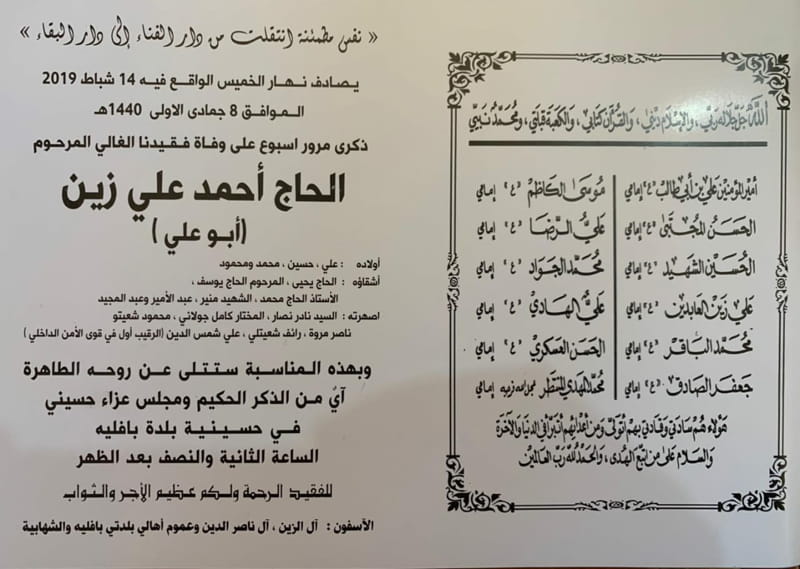 الله جل جلاله ربي، والإسلام ديني، والقرآن كتابي، والكعبة قبلتي، ومحمد نبيي
أمير المؤمنين علي بن أبي طالب "ع" إمامي
الحسن المجتبى "ع" إمامي
الحسين الشهيد "ع" إمامي
علي زين العابدين "ع" إمامي
محمد الباقر "ع" إمامي
جعفر الصادق "ع" إمامي
موسى الكاظم "ع" إمامي
علي الرضا "ع" إمامي
محمد الجواد "ع" إمامي
علي الهادي "ع" إمامي
الحسن العسكري "ع" إمامي
محمد المهدي المنتظر عجل الله فرجه إمامي
هؤلاء هم سادتي وقادتي بهم أتولى ومن أعدائهم أتبرأ في الدنيا والآخرة
والسلام على من اتبع الهدى، والحمد لله رب العالمين
« نفس مطمئنة انتقلت من دار الفناء إلى دار البقاء »
يصادف نهار الخميس الواقع فيه 14 شباط 2019
الموافق 8 جمادى الاولى 1440هـ
ذكرى مرور اسبوع على وفاة فقيدنا الغالي المرحوم
الحاج أحمد علي زين
(أبو علي )
أولاده : علي ، حسين ، محمد ومحمود
أشقاؤه : الحاج يحيى ، المرحوم الحاج يوسف ،
الأستاذ الحاج محمد ، الشهيد منير ، عبد الأمير وعبد المجيد
اصهرته : السيد نادر نصار ، المختار كامل جولاني ، محمود شعيتو
ناصر مروة ، رائف شعيتلي ، علي شمس الدين (الرقيب أول في قوى الأمن الداخلي )
وبهذه المناسبة ستتلى عن روحه الطاهرة
آيٌ من الذكر الحكيم ومجلس عزاء حسيني
في حسينية بلدة بافليه
الساعة الثانية والنصف بعد الظهر
للفقيد الرحمة ولكم عظيم الأجر والثواب
الآسفون : آل الزين ، آل ناصر الدين وعموم أهالي بلدتي بافليه والشهابية